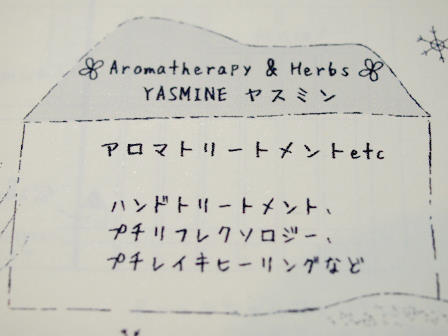 Aromatherapy & Herbs
YASMINE ヤスミン
アロマトリートメントetc
ハンドトリートメント、
プチリフレクソロジー、
プチレイキヒーリングなど